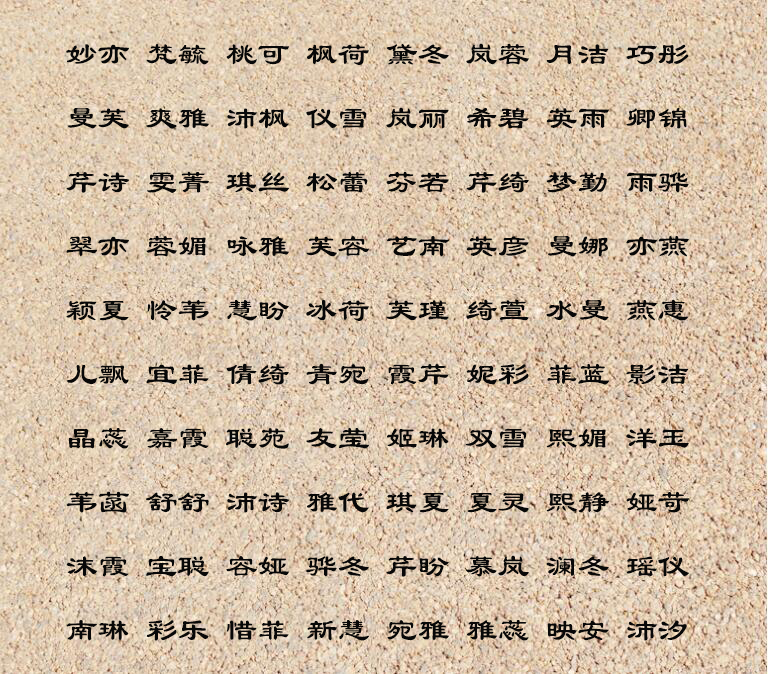 妙亦 梵毓 桃可 枫荷 黛冬 岚蓉 月洁 巧彤
曼芙 爽雅 沛枫 仪雪 岚丽 希碧 英雨 卿锦
芹诗 雯菁 琪丝 松蕾 芬若 芹绮 梦勤 雨骅
翠亦 蓉媚 咏雅 芙容 艺南 英彦 曼娜 亦燕
颖夏 怜苇 慧盼 冰荷 芙瑾 绮萱 水曼 燕惠
儿飘 宜菲 倩绮 青宛 霞芹 妮彩 菲蓝 影洁
晶蕊 嘉霞 聪苑 友莹 姬琳 双雪 熙媚 洋玉
苇菡 舒舒 沛诗 雅代 琪夏 夏灵 熙静 娅苛
沫霞 宝聪 容娅 骅冬 芹盼 慕岚 澜冬 瑶仪
南琳 彩乐 惜菲 新慧 宛雅 雅蕊 映安 沛汐